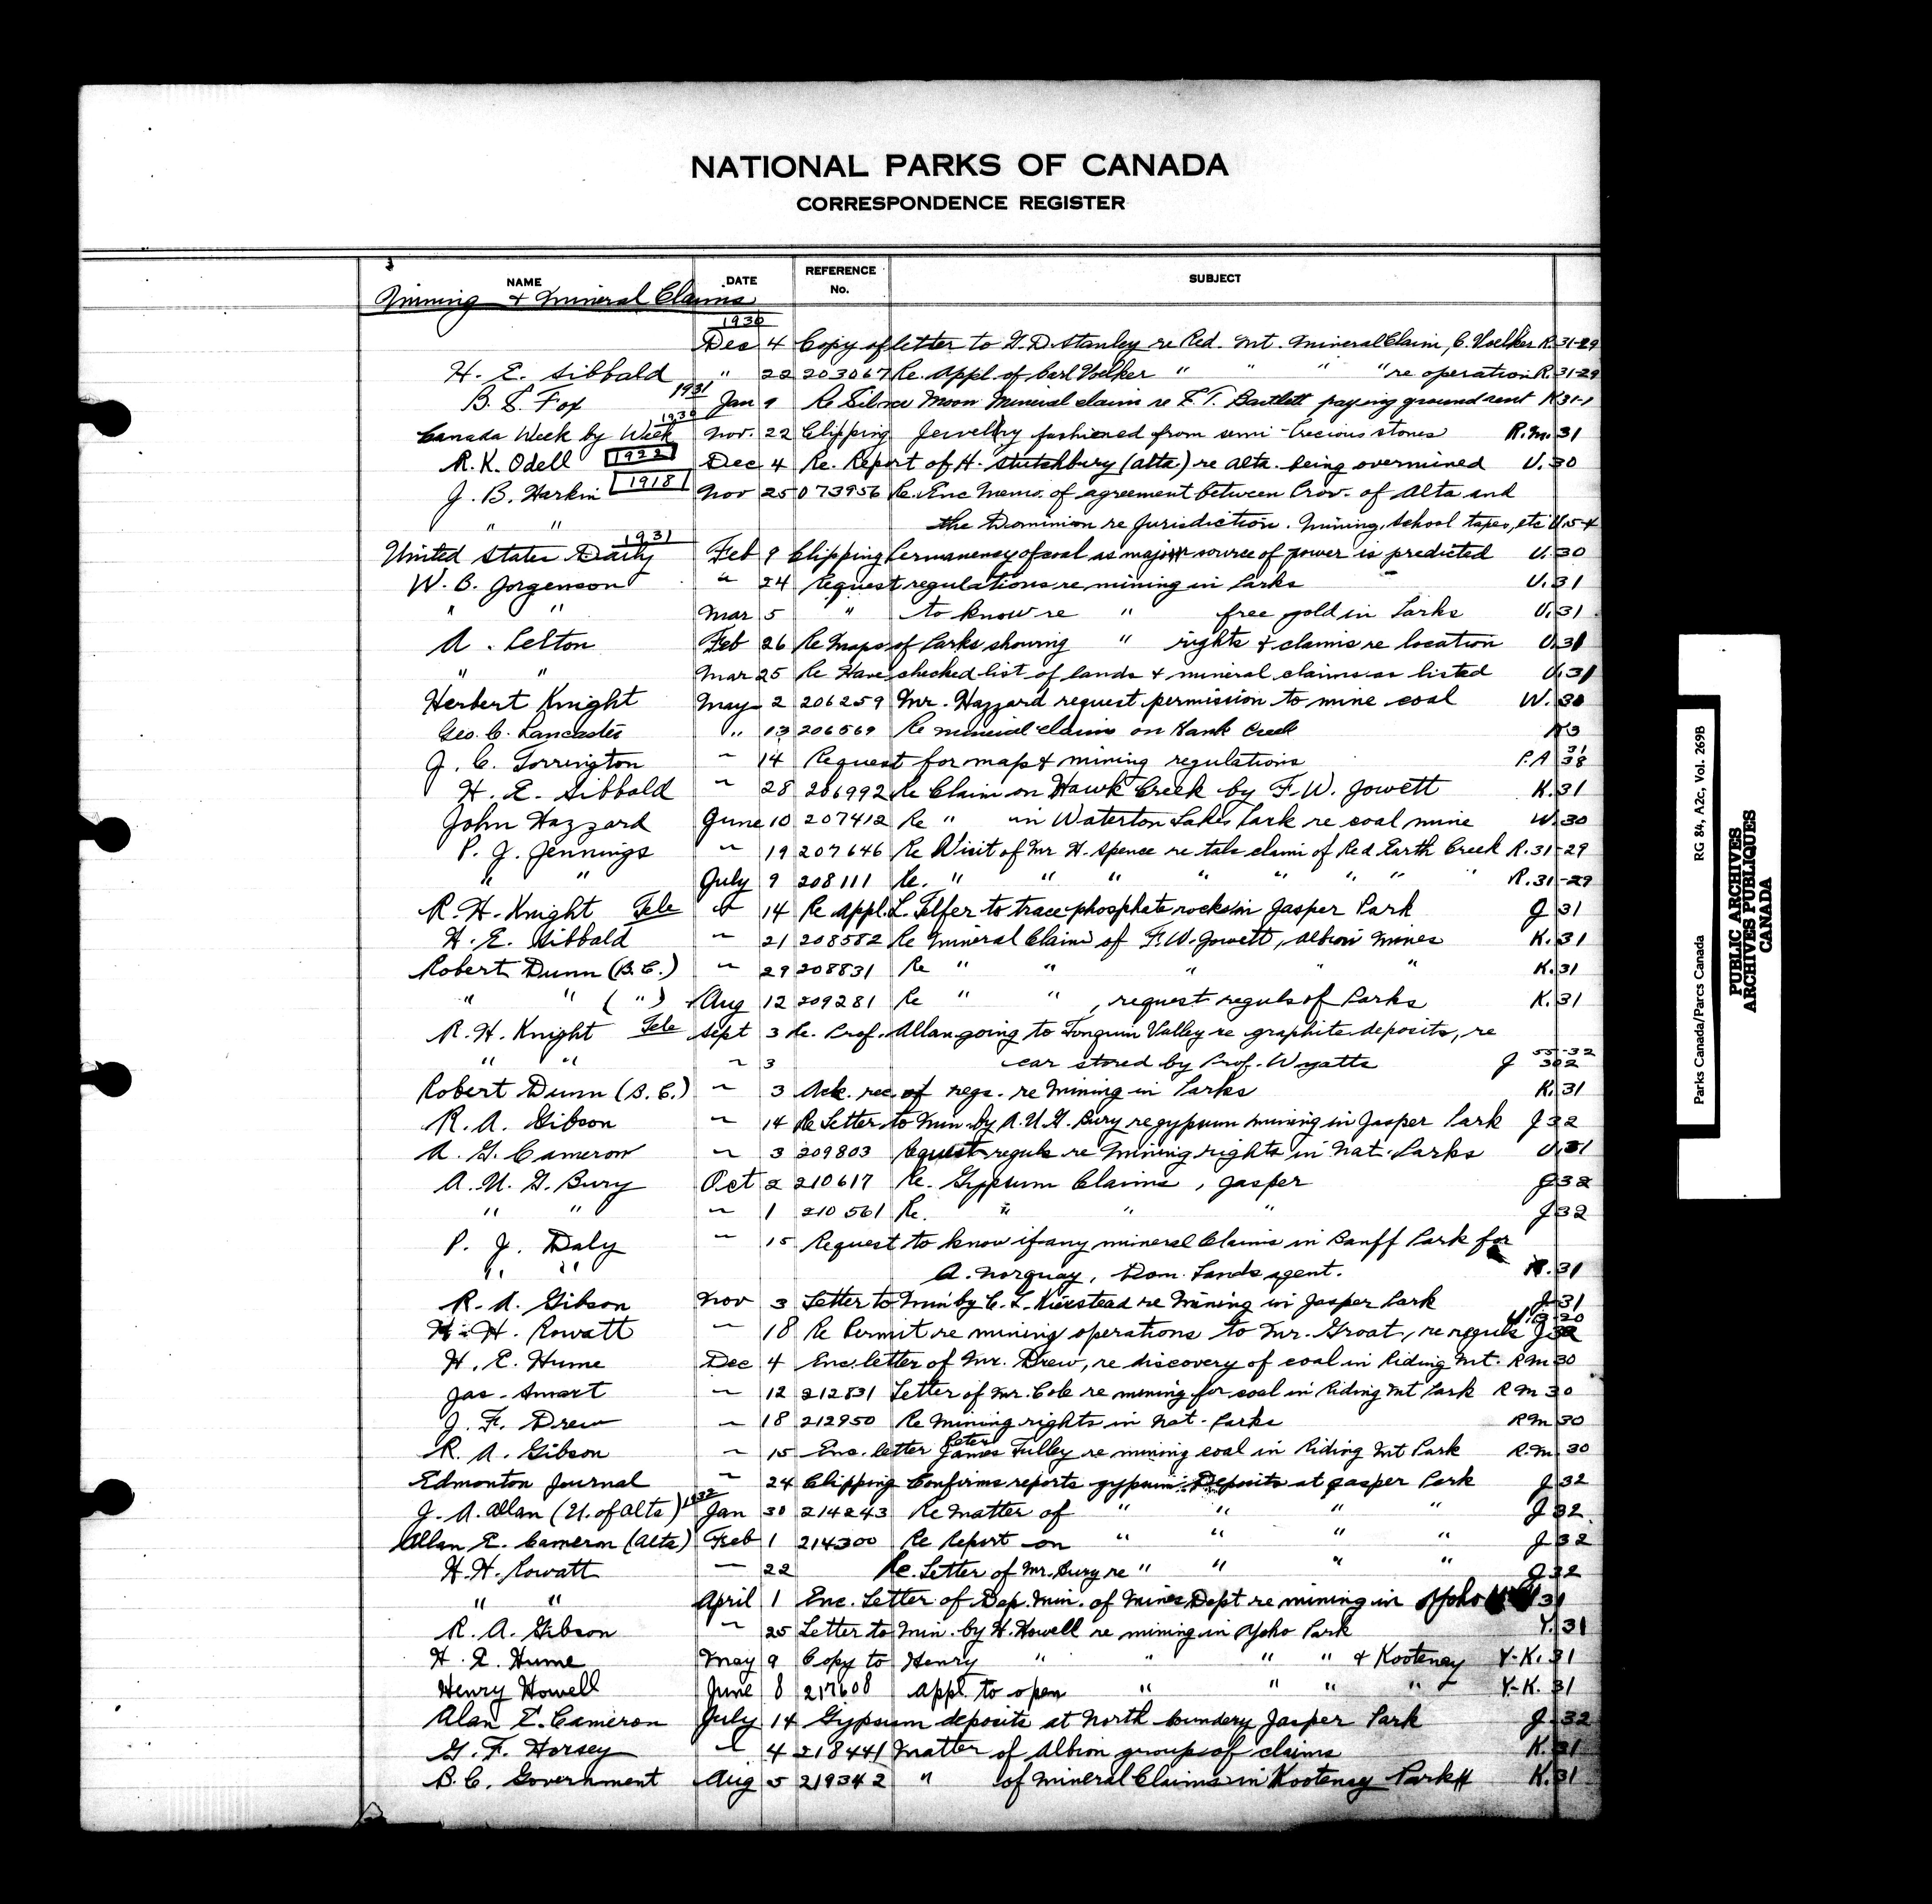 NATIONAL PARKS OF CANADA
CORRESPONDENCE REGISTER
NAME DATE REFERENCE No. SUBJECT
Mining & Mineral Claims
1930
Dec 4 Copy of letter to G. D. Stanley re Red. Mt. Mineral Claim, C. Voelker R. 31-29
H. E. Sibbald " 22 203067 Re. Appl. of Carl Voelker " " " " re operation R. 31-29
B. S. Fox 1931 Jan 9 Re Silver Moon Mineral claim re E. T. Bartlett paying ground rent K31-1
Canada Week by Week 1930 Nov. 22 Clipping Jewellry fashioned from semi-Precious stones R.M. 31
R. K. Odell 1922 Dec 4 Re. Report of H. Stutchbury (Alta.) re Alta. being overmined U. 30
J. B. Harkin 1918 Nov 25 073956 Re. Enc Memo. of agreement between Prov. of Alta and
" " the Dominion re Jurisdiction. Mining, School taxes, etc U.5-4
United States Daily 1931 Feb 9 Clipping Permanency of coal as major source of power is predicted U. 30
W. C. Jorgenson " 24 Request regulations re mining in Parks U. 31
" " Mar 5 " to know re " free gold in Parks U. 31
A. Pelton Feb 26 Re Maps of Parks showing " rights & claims re location U. 31
" " Mar 25 Re Have checked list of lands & mineral claims as listed U. 31
Herbert Knight May 2 206259 Mr. Hazzard request permission to mine coal W. 30
Geo. C. Lancaster " 13 206569 Re mineral claims on Hank Creek
J. C. Torrington " 14 Request for map & mining regulations P.A 31 38
H. E. Sibbald " 28 206992 Re Claim on Hawk Creek by F. W. Jowett K. 31
John Hazzard June 10 207412 Re " in Waterton Lakes Park re coal mine W. 30
P. J. Jennings " 19 207646 Re Visit of Mr H. Spence re talc claim of Red Earth Creek R. 31-29
" " July 9 208111 Re. " " " " " " " " R. 31-29
R. H. Knight Tele " 14 Re Appl. L. Telfer to trace phosphate rocks in Jasper Park J 31
H. E. Sibbald " 21 208582 Re Mineral Claim of F. W. Jowett, Albion Mines K. 31
Robert Dunn (B.C.) " 29 208831 Re " " " " " K. 31
" " ( " ) Aug 12 209281 Re " " , request reguls of Parks K. 31
R. H. Knight Tele Sept 3 Re. Prof. Allan going to Tonquin Valley re graphite deposits, re
" " " 3 car stored by Prof. Wyatts J 55-32 302
Robert Dunn (B.C.) " 3 Ack. rec. of regs. re Mining in Parks K. 31
R. A. Gibson " 14 Re Letter to Min. by A. U. G. Bury re gypsum mining in Jasper Park J 32
A. G. Cameron " 3 209803 Request reguls re Mining rights in Nat. Parks U. 31
A. U. G. Bury Oct 2 210617 Re. Gypsum Claims, Jasper J 32
" " " 1 210561 Re. " " " J 32
P. J. Daly " 15 Request to know if any mineral Claims in Banff Park for
" " A. Norquay, Dom. Lands agent. R. 31
R. A. Gibson Nov 3 Letter to Min by C. L. Kierstead re Mining in Jasper Park J 31
H. H. Rowatt " 18 Re Permit re mining operations to Mr. Groat, re reguls J 32
H. E. Hume Dec 4 Enc. letter of Mr. Drew, re discovery of coal in Riding Mt. R M 30
Jas. Smart " 12 212831 Letter of Mr. Cole re mining for coal in Riding Mt Park R M 30
J. F. Drew " 18 212950 Re Mining rights in Nat. Parks R M 30
R. A. Gibson " 15 Enc. letter Peter James Tulley re mining coal in Riding Mt Park R. M. 30
Edmonton Journal " 24 Clipping Confirms reports gypsum Deposits at Jasper Park J 32
J. A. Allan (U. of Alta) 1932 Jan 30 214243 Re Matter of " " " " J 32
Allan E. Cameron (Alta) Feb 1 214300 Re Report on " " " " J 32
H. H. Rowatt " 22 Re. Letter of Mr. Bury re " " " " J 32
" " April 1 Enc. Letter of Dep. Min. of Mines Dept re mining in Yoho 31
R. A. Gibson " 25 Letter to Min. by H. Howell re mining in Yoho Park Y. 31
H. E. Hume May 9 Copy to Henry " " " " & Kootenay Y-K. 31
Henry Howell June 8 217608 Appl. to open " " " " Y-K. 31
Alan E. Cameron July 14 Gypsum deposits at North boundery Jasper Park J 32
G. F. Horsey " 4 218441 Matter of Albion group of claims K. 31
B. C. Government Aug 5 219342 " of Mineral Claims in Kootenay Park K. 31
Parks Canada/Parcs Canada RG 84, A2c, Vol. 269B
PUBLIC ARCHIVES
ARCHIVES PUBLIQUES
CANADA